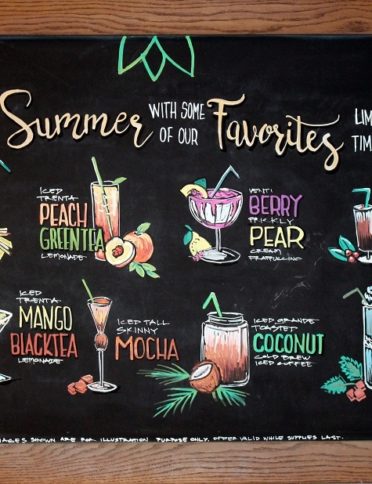 Summer WITH SOME OF OUR Favorites
LIM
TIM
ICED
TRENTA
PEACH
GREENTEA
LEMONADE
VENTI
BERRY
PRICKLY
PEAR
CREAM
FRAPPUCCINO
ICED
TRENTA
MANGO
BLACKTEA
LEMONADE
ICED TALL
SKINNY
MOCHA
ICED GRANDE
TOASTED
COCONUT
COLD BREW
ICED COFFEE
IMAGES SHOWN ARE FOR ILLUSTRATION PURPOSE ONLY. OFFER VALID WHILE SUPPLIES LAST.